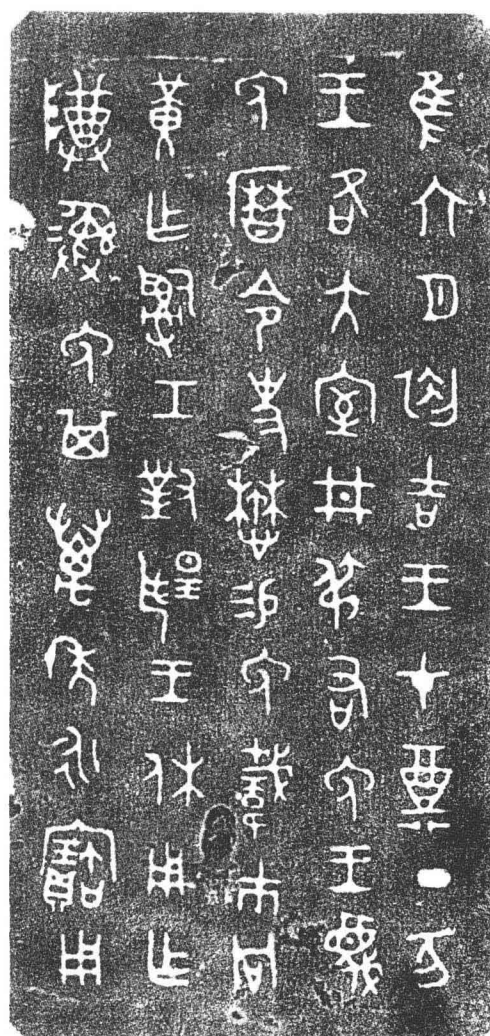 隹六月初吉王才奠丁亥
王各大室井弔右免王蔑
免曆令史懋易免載巿冋
黃乍𤔲工對揚王休用乍
尊彝免其萬年永寶用